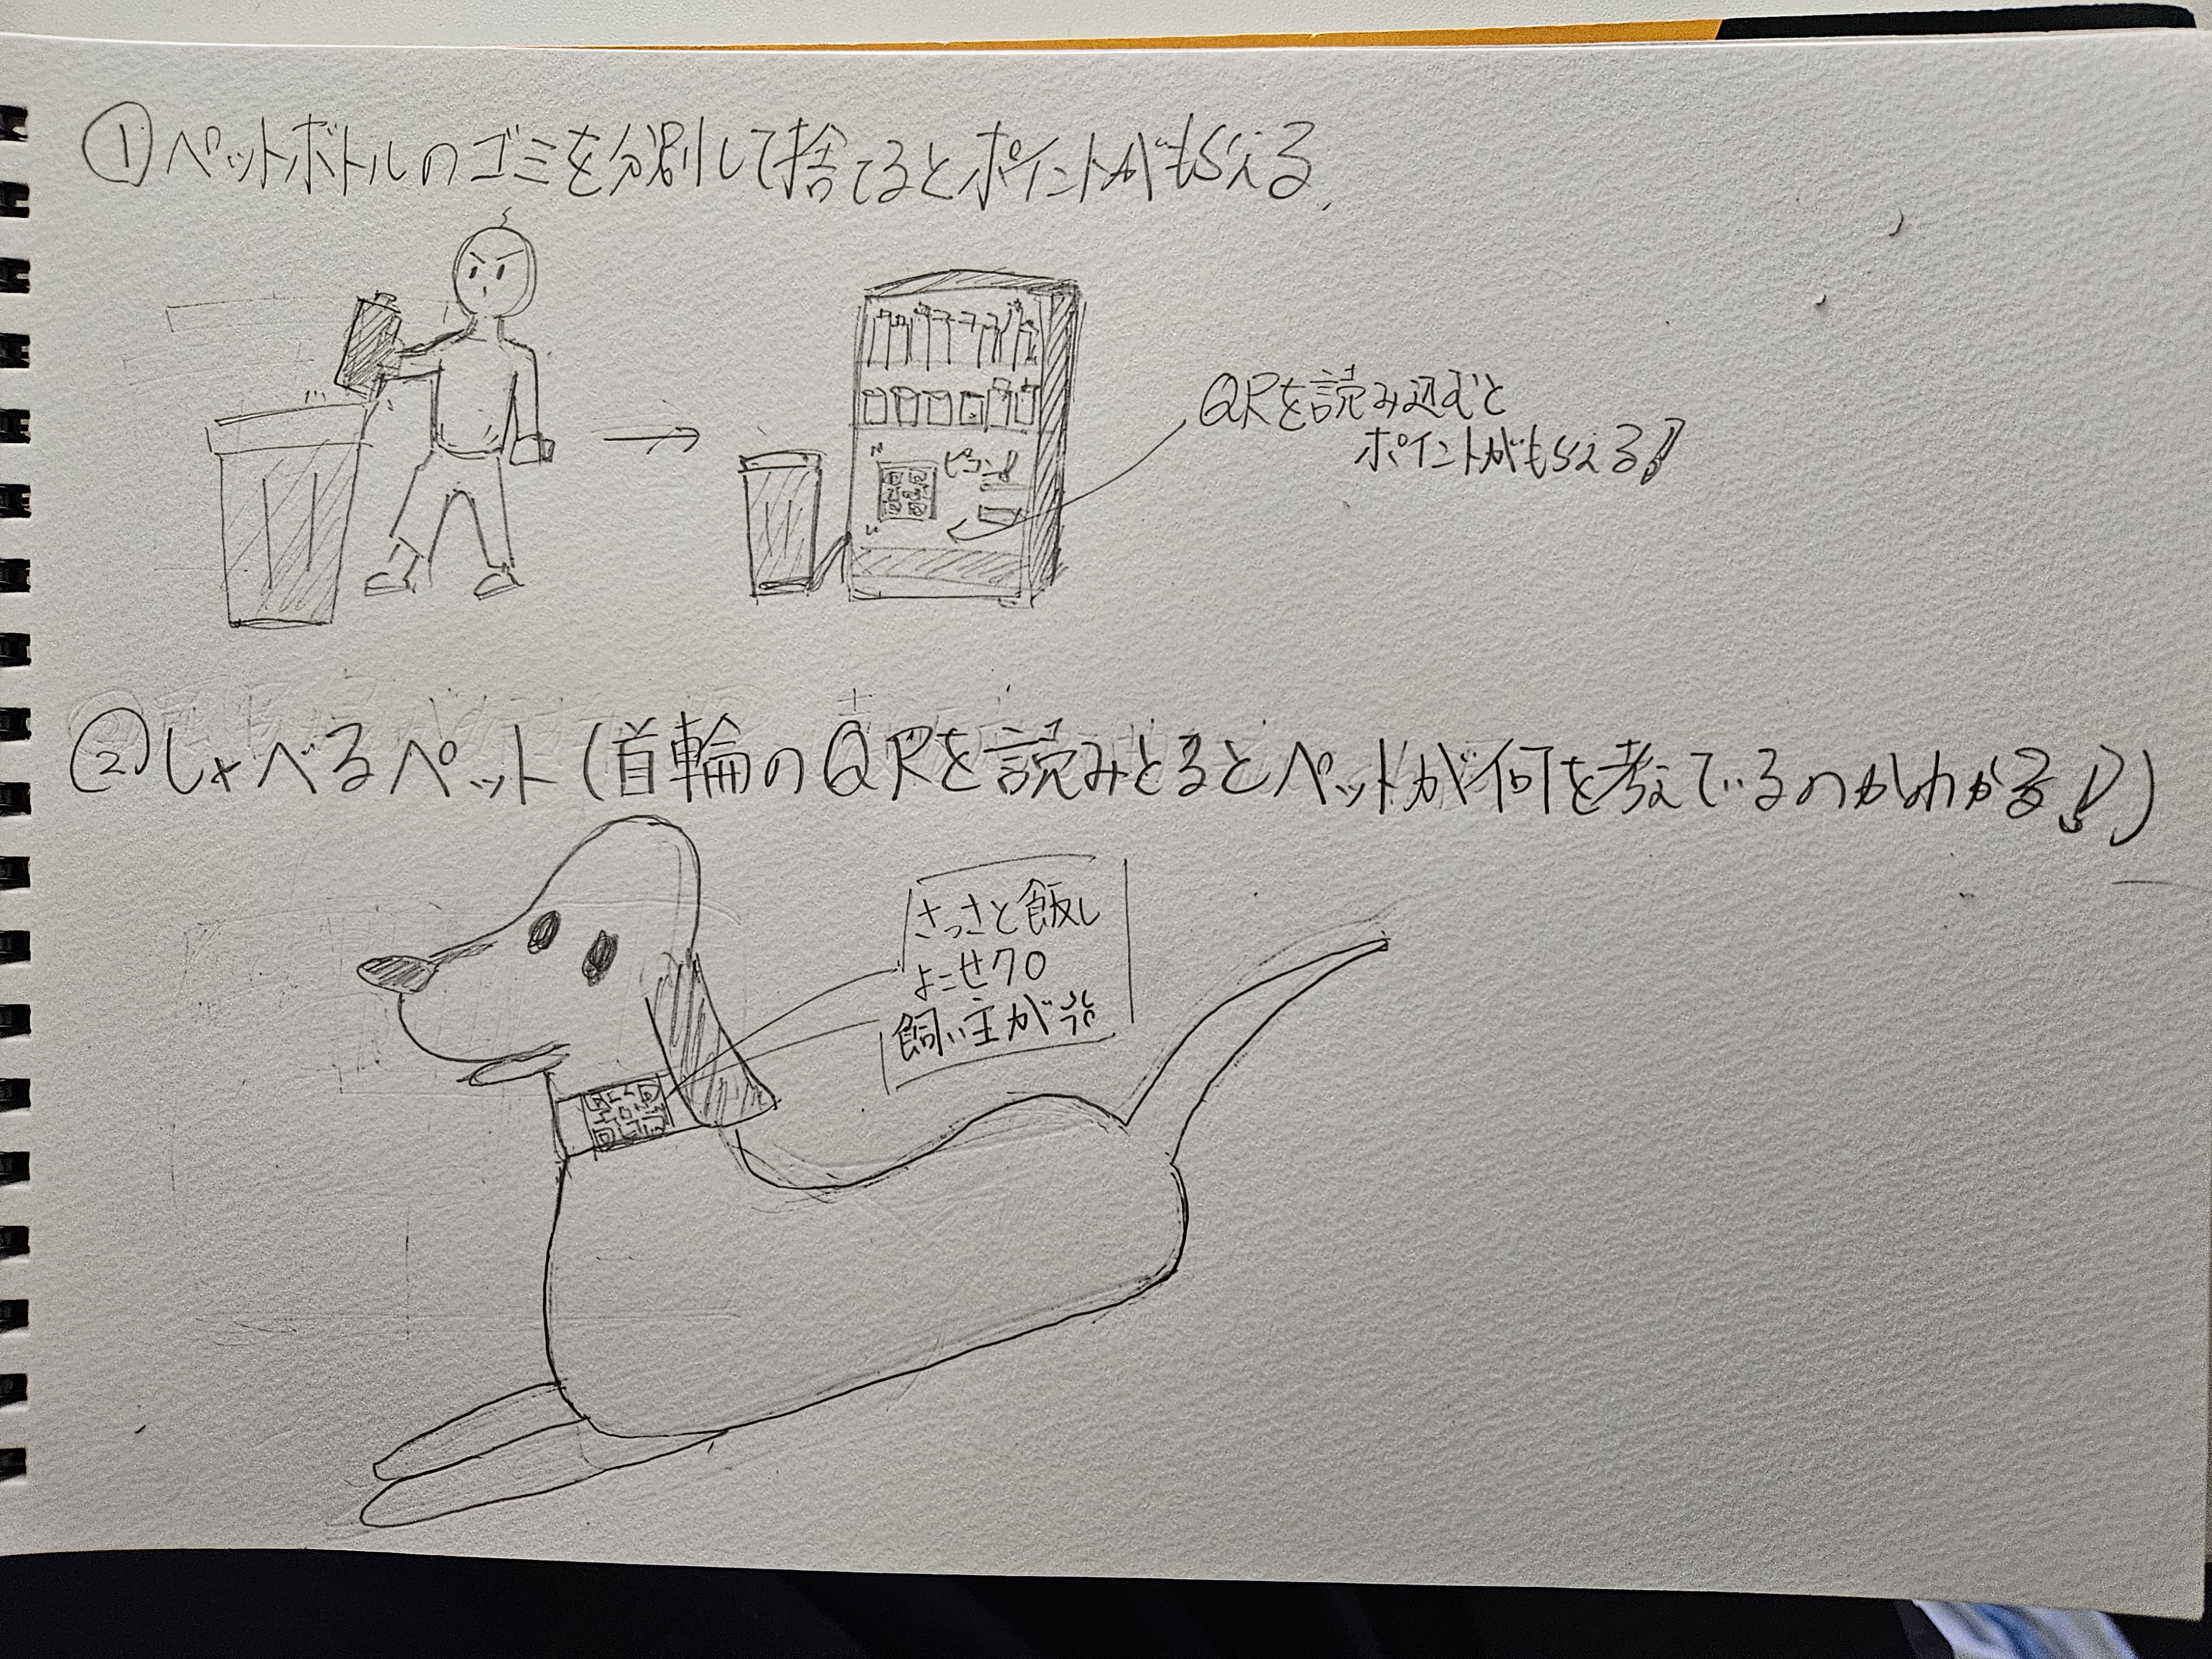 ①ペットボトルのゴミを分別して捨てるとポイントがもらえる
QRを読み込むと
ポイントがもらえる!
②しゃべるペット(首輪のQRを読みとるとペットが何を考えているのかわかる!)
さっさと飯し
よこせクロ
飼い主が